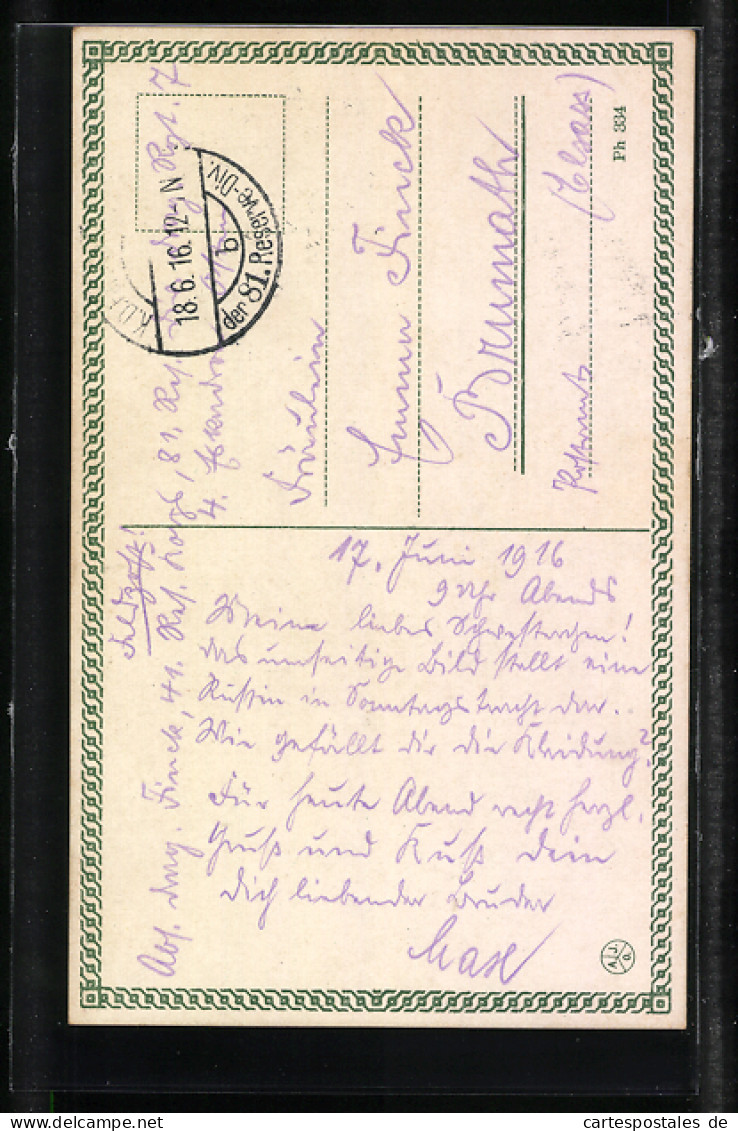 Feldpost!
Abs. Drag. Finck, 41. Res. Korps, 81. Res. Div. Drag. Rgt. 7
4. Eskadron
K.D.
18.6.16. 12-1 N
b
der 81. Reserve-Div.
Fräulein
Emma Finck
Brumath
Postamt (Elsass)
Ph 334
17. Juni 1916
9 Uhr Abends
Meine liebes Schwesterchen!
Das umseitige Bild stellt eine
Russin in Sonntagstracht dar.
Wie gefällt dir die Kleidung?
Für heute Abend recht herzl.
Gruß und Kuß dein
dich liebender Bruder
Max
cartespostales de